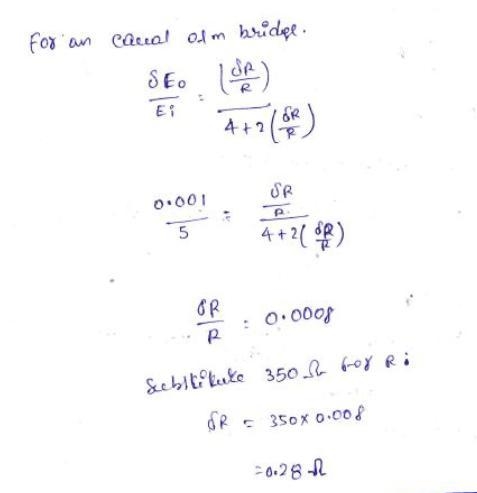 For an equal arm bridge.
δE₀/Eᵢ = (δR/R) / (4+2(δR/R))
0.001/5 = (δR/R) / (4+2(δR/R))
δR/R = 0.0008
Substitute 350 Ω for R:
δR = 350 x 0.008
=0.28 Ω